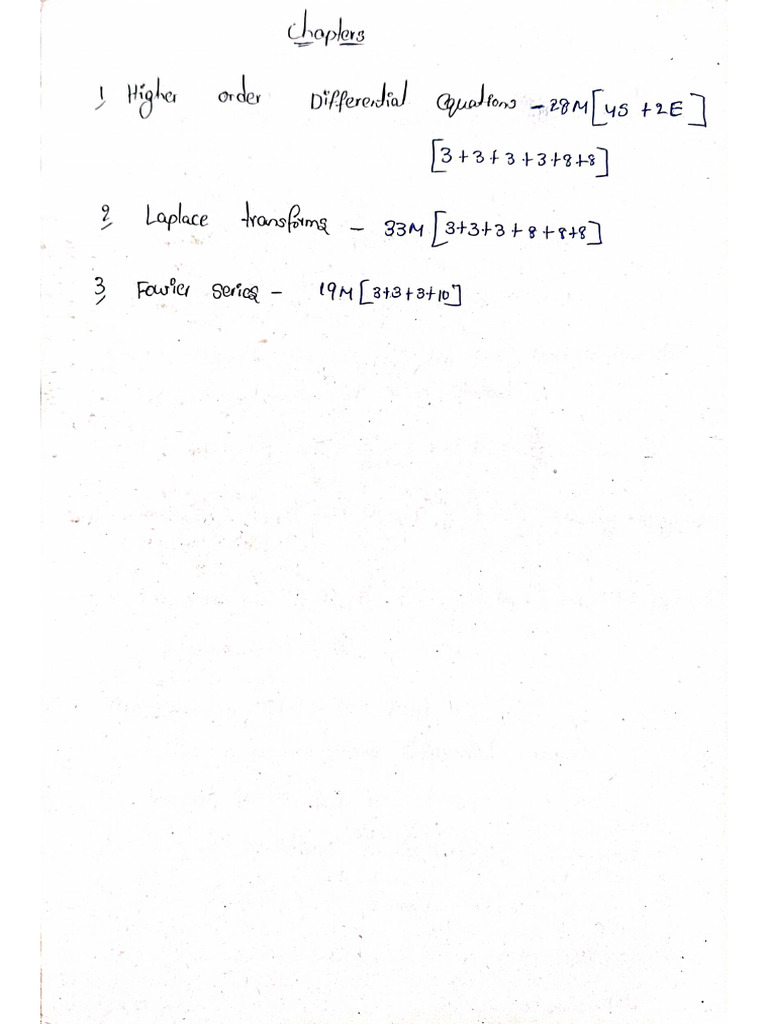 Chapters
1, Higher order Differential Equations - 28M [4S + 2E]
[3+3+3+3+8+8]
2, Laplace transforms - 33M [3+3+3+8+8+8]
3, Fourier Series - 19M [3+3+3+10]